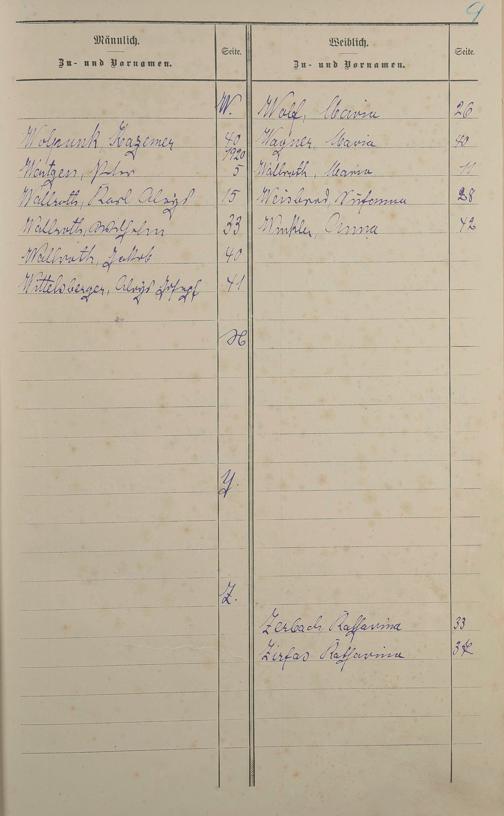 9
Männlich. Seite. Weiblich. Seite.
Zu- und Vornamen. Zu- und Vornamen.
W. Wolf, Maria 26
Wolnunk, Kazemer 40 Wagner, Maria 40
1920
Wintgen, Peter 5 Wallroth, Maria 11
Wallroth, Karl Aloys 15 Weisbrod, Susanna 28
Wallroth, Wilhelm 33 Winkler, Anna 42
Wallroth, Jakob 40
Wittelsberger, Aloys Josef 41
X
Y.
Z.
Zerbach Katharina 33
Zirfas Katharina